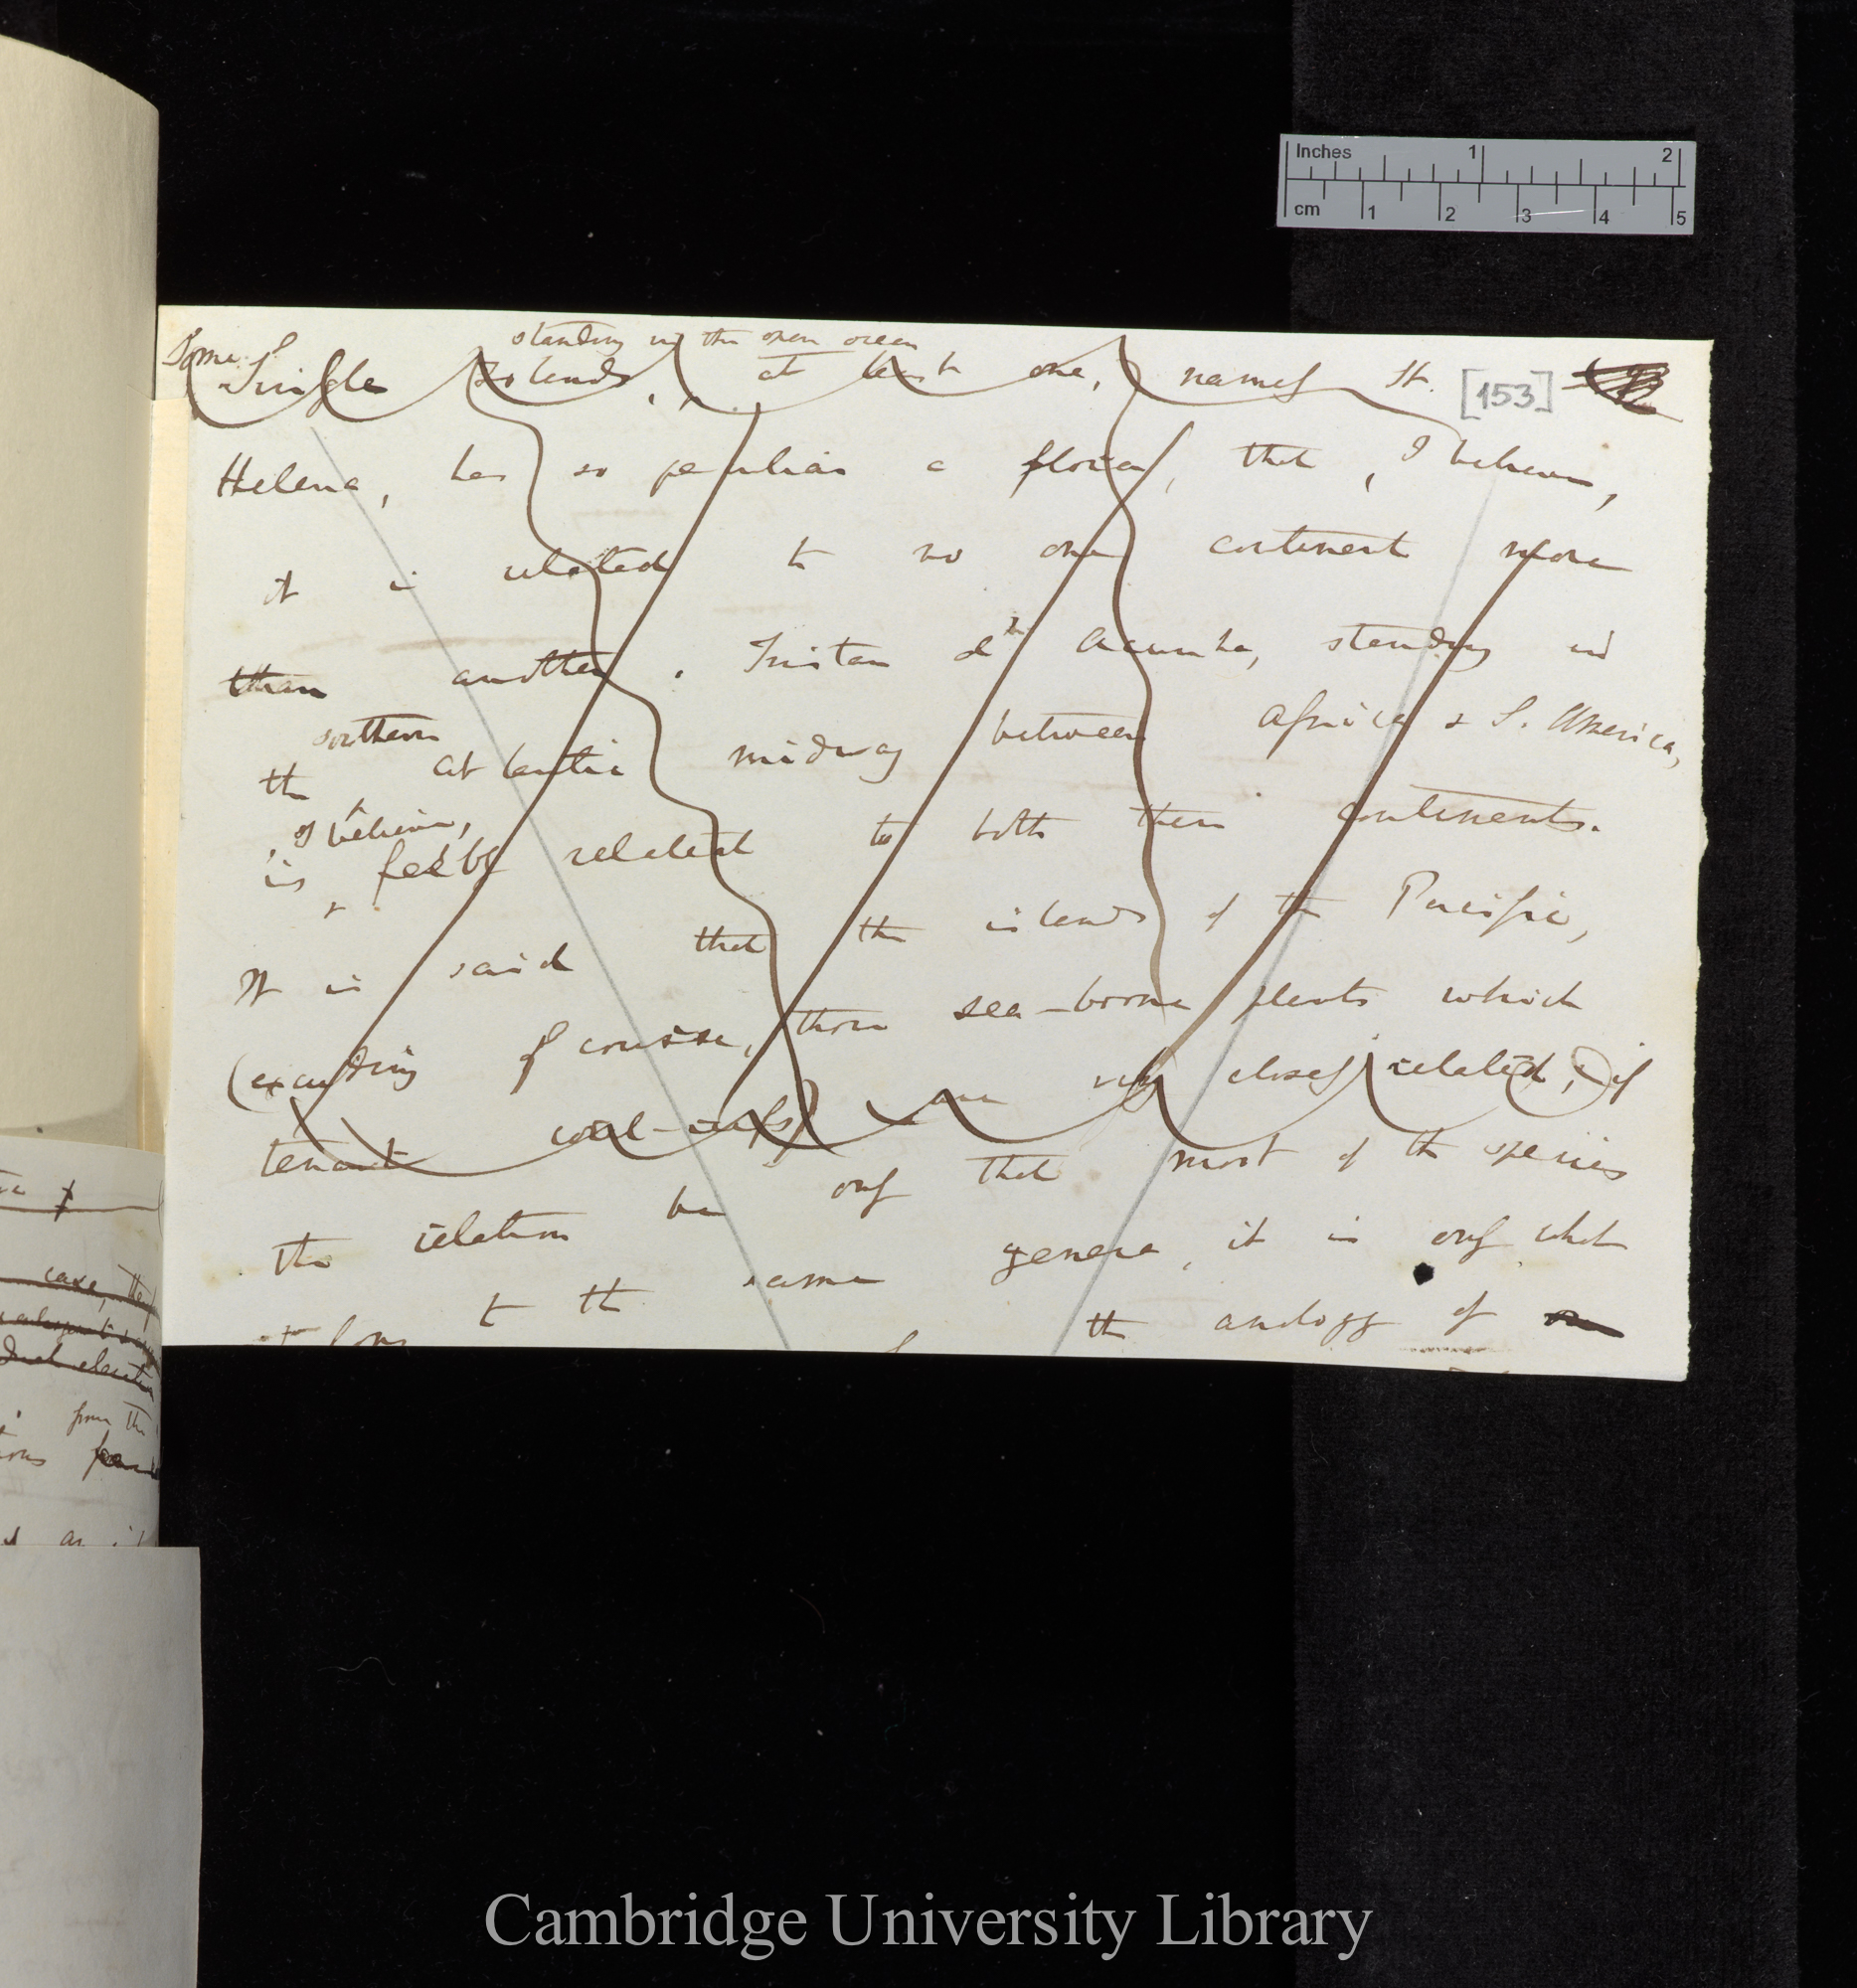 Inches 1 2
cm 1 2 3 4 5
standing in the open ocean
Some Single Islands, at least one, namely St. [153]
Helena, has so peculiar a flora, that, I believe,
it is related to no one continent more
than another. Tristan d' Acunha, standing in
southern
the Atlantic midway between Africa & S. America,
, I believe,
is feebly related to both these continents.
It is said that the islands of the Pacific,
(excepting of course, those sea-borne plants which
tenant coral-reefs) are very closely related, if
the relation be only that most of the species
to the same genera, it is only what
the analogy of
case, they
from the
Cambridge University Library